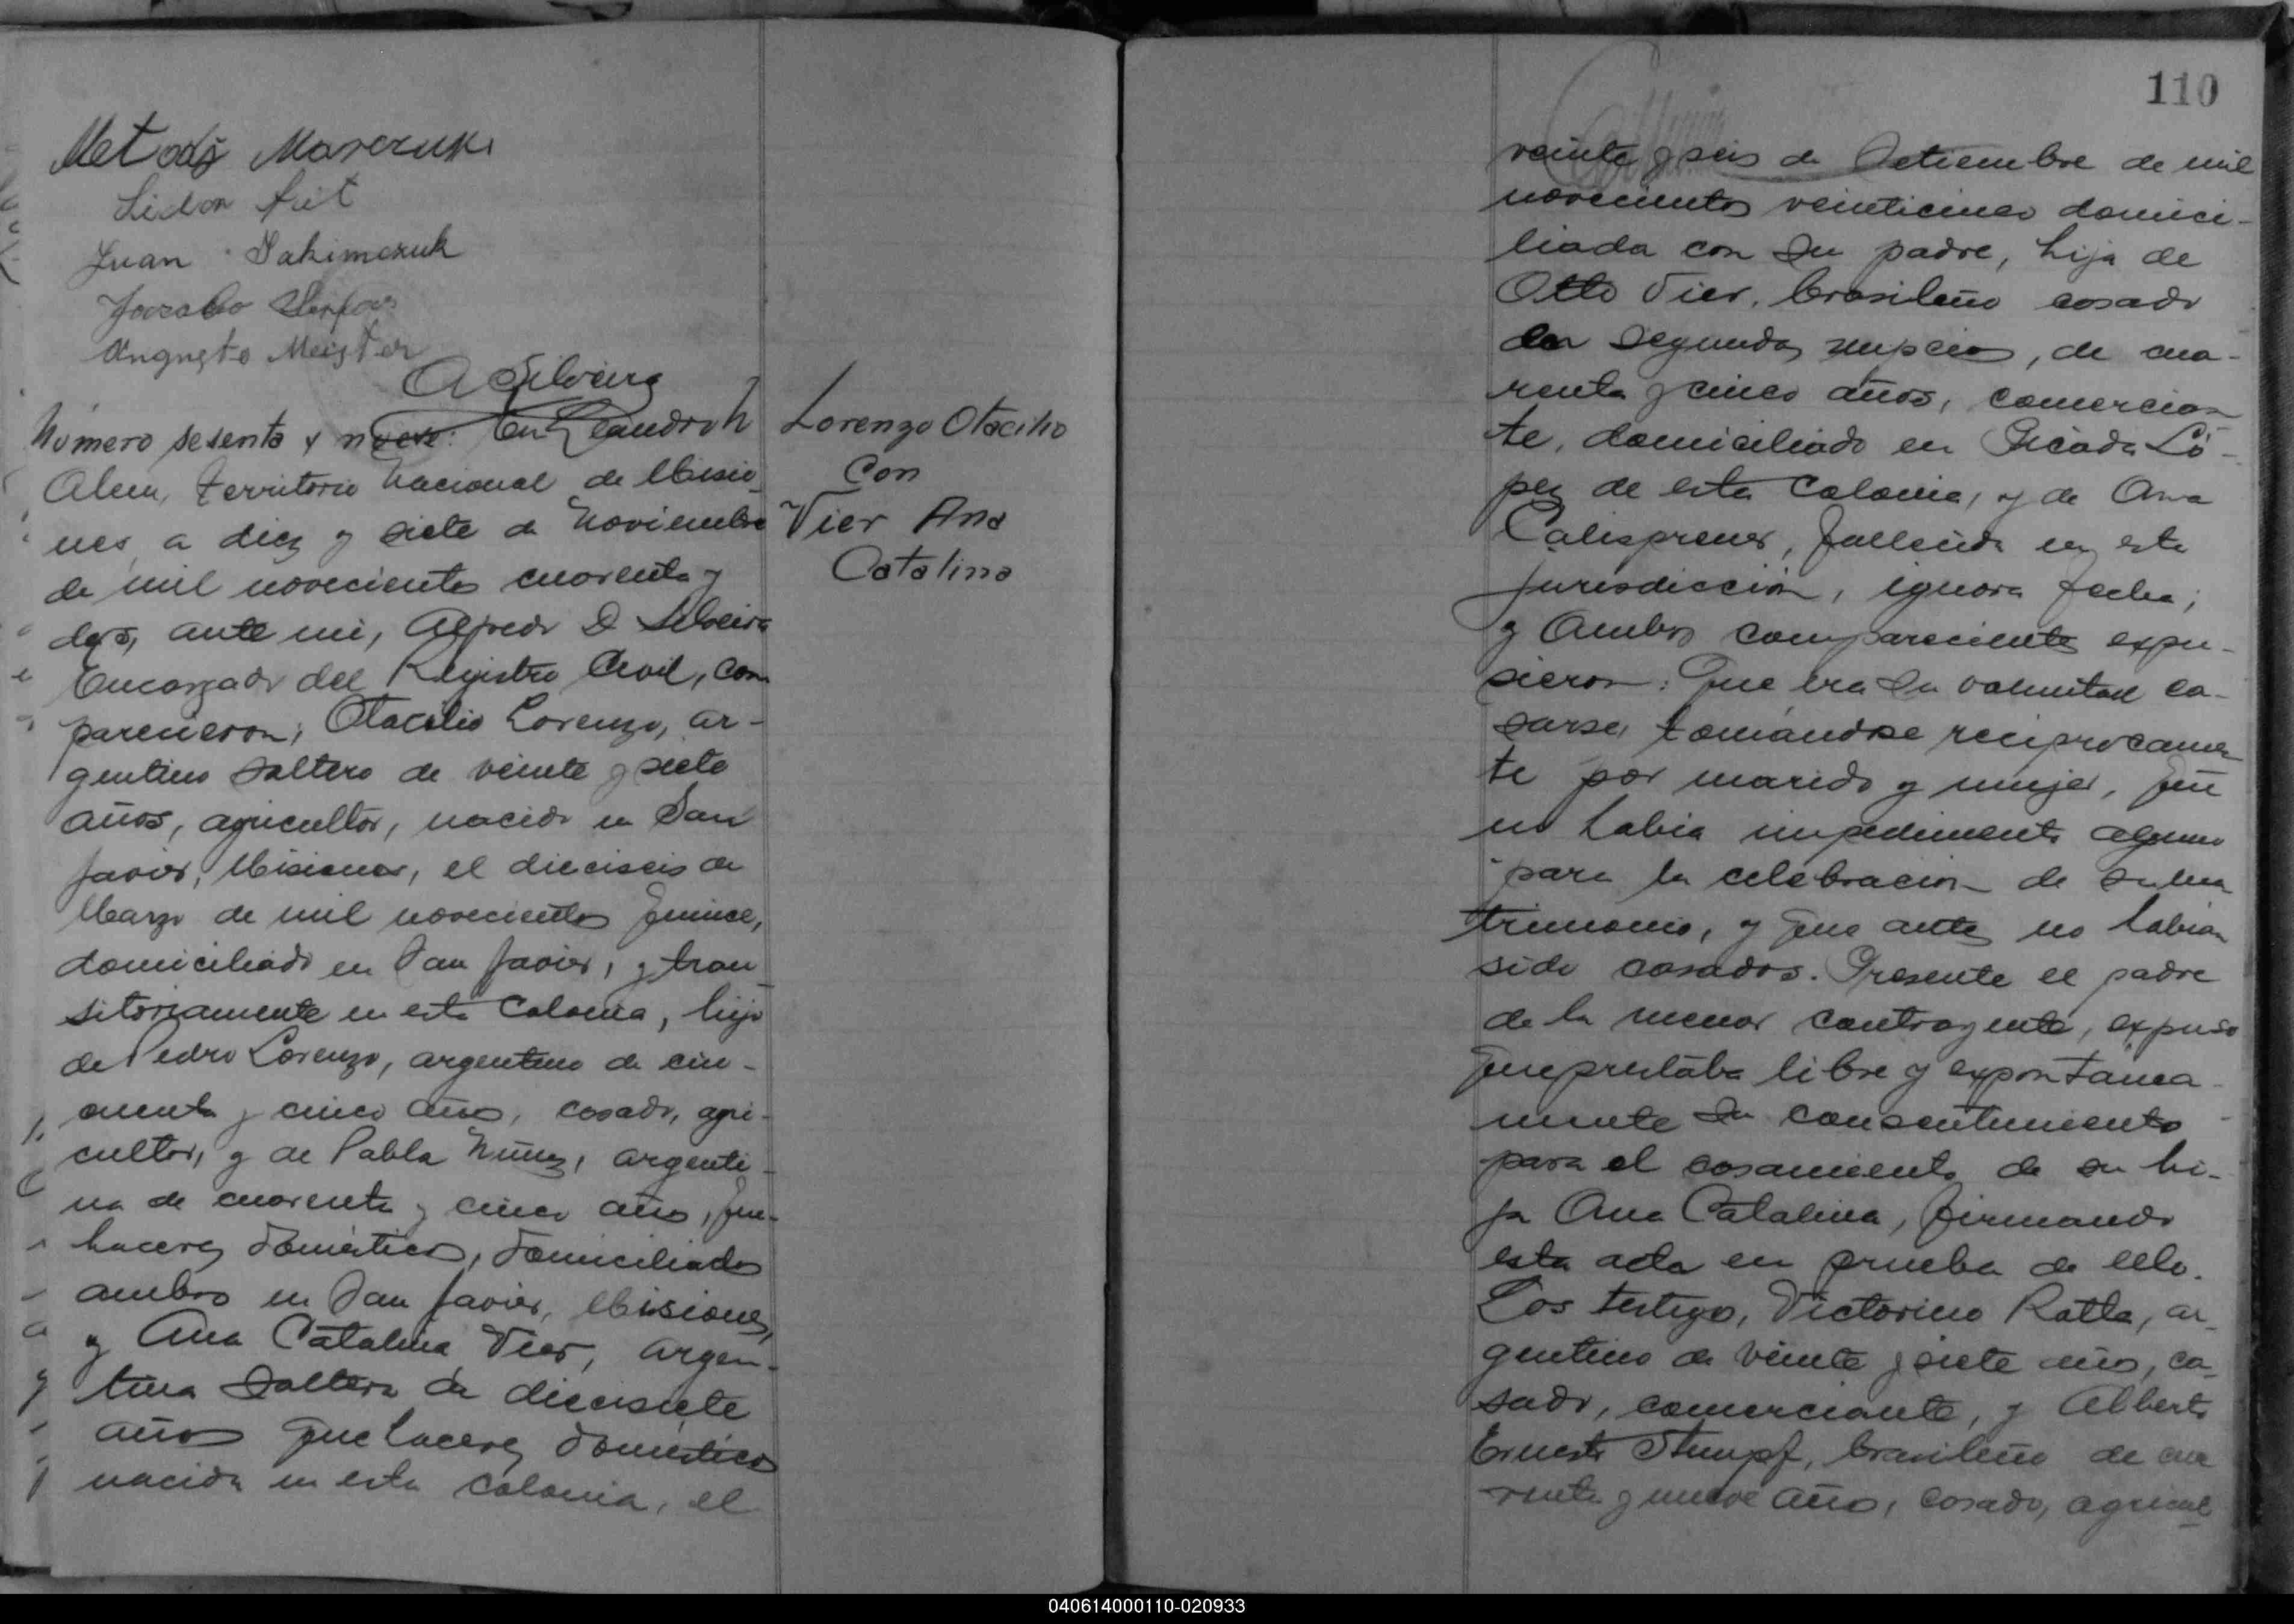 Juan Jakimczuk
Augusto Meister
A Silveira
Número sesenta y nueve. En Leandro N
Alem, Territorio Nacional de Misio-
nes, a diez y siete de Noviembre
de mil novecientos cuarenta y
dos, ante mi, Alfredo D Silveira
Encargado del Registro Civil, com
parecieron; Otacilio Lorenzo, ar-
gentino soltero de veinte y siete
años, agricultor, nacido en San
Javier, Misiones, el dieciseis de
Marzo de mil novecientos quince,
domiciliado en San Javier, y tran
sitoriamente en esta Colonia, hijo
de Pedro Lorenzo, argentino de cin-
cuenta y cinco años, casado, agri-
cultor, y de Pabla Núñez, argenti-
na de cuarenta y cinco años, que-
haceres domésticos, domiciliados
ambos en San Javier, Misiones,
y Ana Catalina Vier, argen-
tina soltera de diecisiete
años quehaceres domésticos
nacida en esta colonia, el
Lorenzo Otacilio
Con
Vier Ana
Catalina
110
veinte y seis de Setiembre de mil
novecientos veinticinco domici-
liada con su padre, hija de
Otto Vier, brasileño casado
en segundas nupcias, de cua-
renta y cinco años, comercian
te, domiciliado en Picada Ló-
pez de esta Colonia, y de Ana
fallecida en esta
jurisdicción, ignora fecha;
y Ambos comparecientes expu-
sieron: Que era su voluntad ca-
sarse, tomándose reciprocamen
te por marido y mujer, que
no habia impedimento alguno
para la celebracion de su ma
trimonio, y que antes no habian
sido casados. Presente el padre
de la menor contrayente, expuso
que prestaba libre y expontanea-
mente su consentimiento
para el casamiento de su hi-
ja Ana Catalina, firmando
esta acta en prueba de ello.
Los testigos, Victorino Ratta, ar-
gentino de veinte y siete años, ca-
sado, comerciante, y Alberto
Ernesto Stumpf, brasileño de cua
renta y nueve años, casado, agricul
040614000110-020933